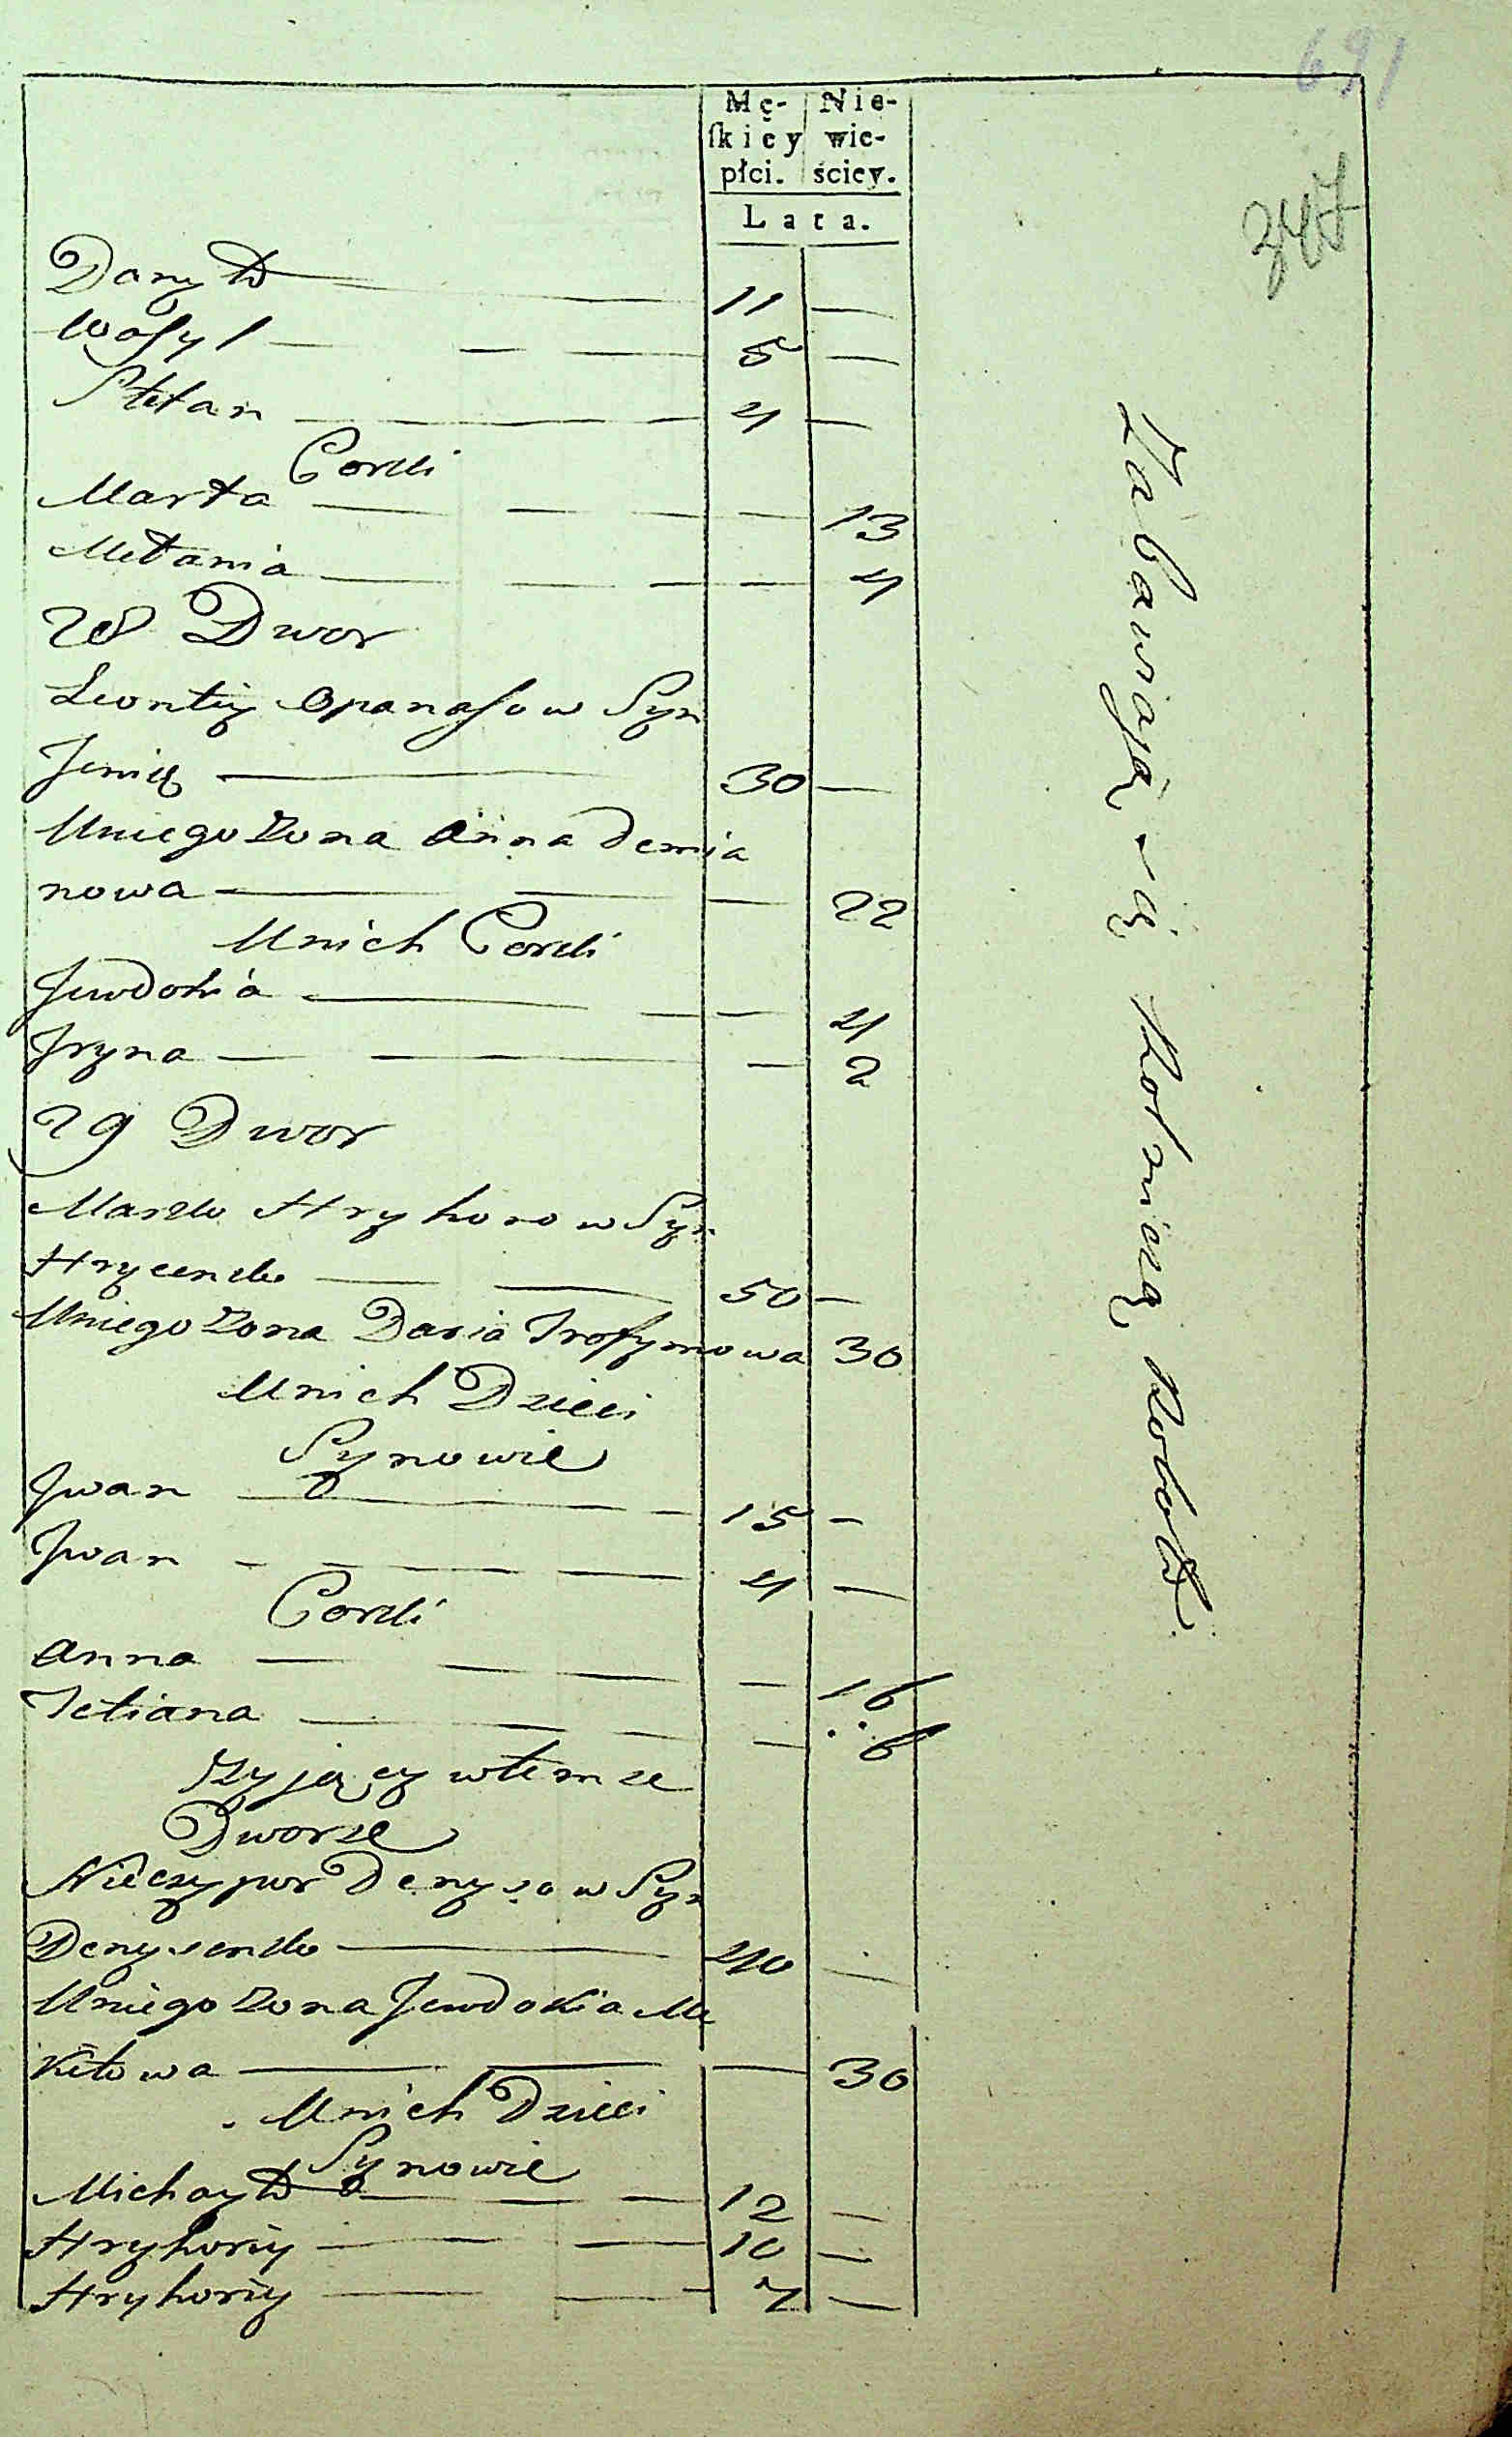 691
347
Mę- Nie-
ſkiey wie-
płci. ściey.
Lata.
Daniło 11 —
Wasyl — — — 5 —
Stefan — — — 4 —
Corki
Marta — — — — 13
Mełania — — — — 4
28 Dwor
Leontiy Opanasow Syn
— 30 —
Uniego Zona Anna Demia
nowa — — — 22
Unich Corki
Jewdokia — — — 4
Jryna — — — 2
29 Dwor
Marko Hryhorow Syn
Hrycenko — — 50 —
Uniego Zona Daria Trofymowa 30
Unich Dzieci
Synowie
Jwan — — — 15 —
Jwan — — — — 4 —
Corki
Anna — — — 16
Tetiana — — — — 6
Zyjący wtemze
Dworze
Nieczypor Denysow Syn
Denysenko — 40 —
Uniego Zona Jewdokia Me
kitowa — — — 30
Unich Dzieci
Synowie
Michayło — — 12 —
Hryhoriy — — 10 —
Hryhoriy — — 7 —
Zabawiaią się Rolniczą Robotą.